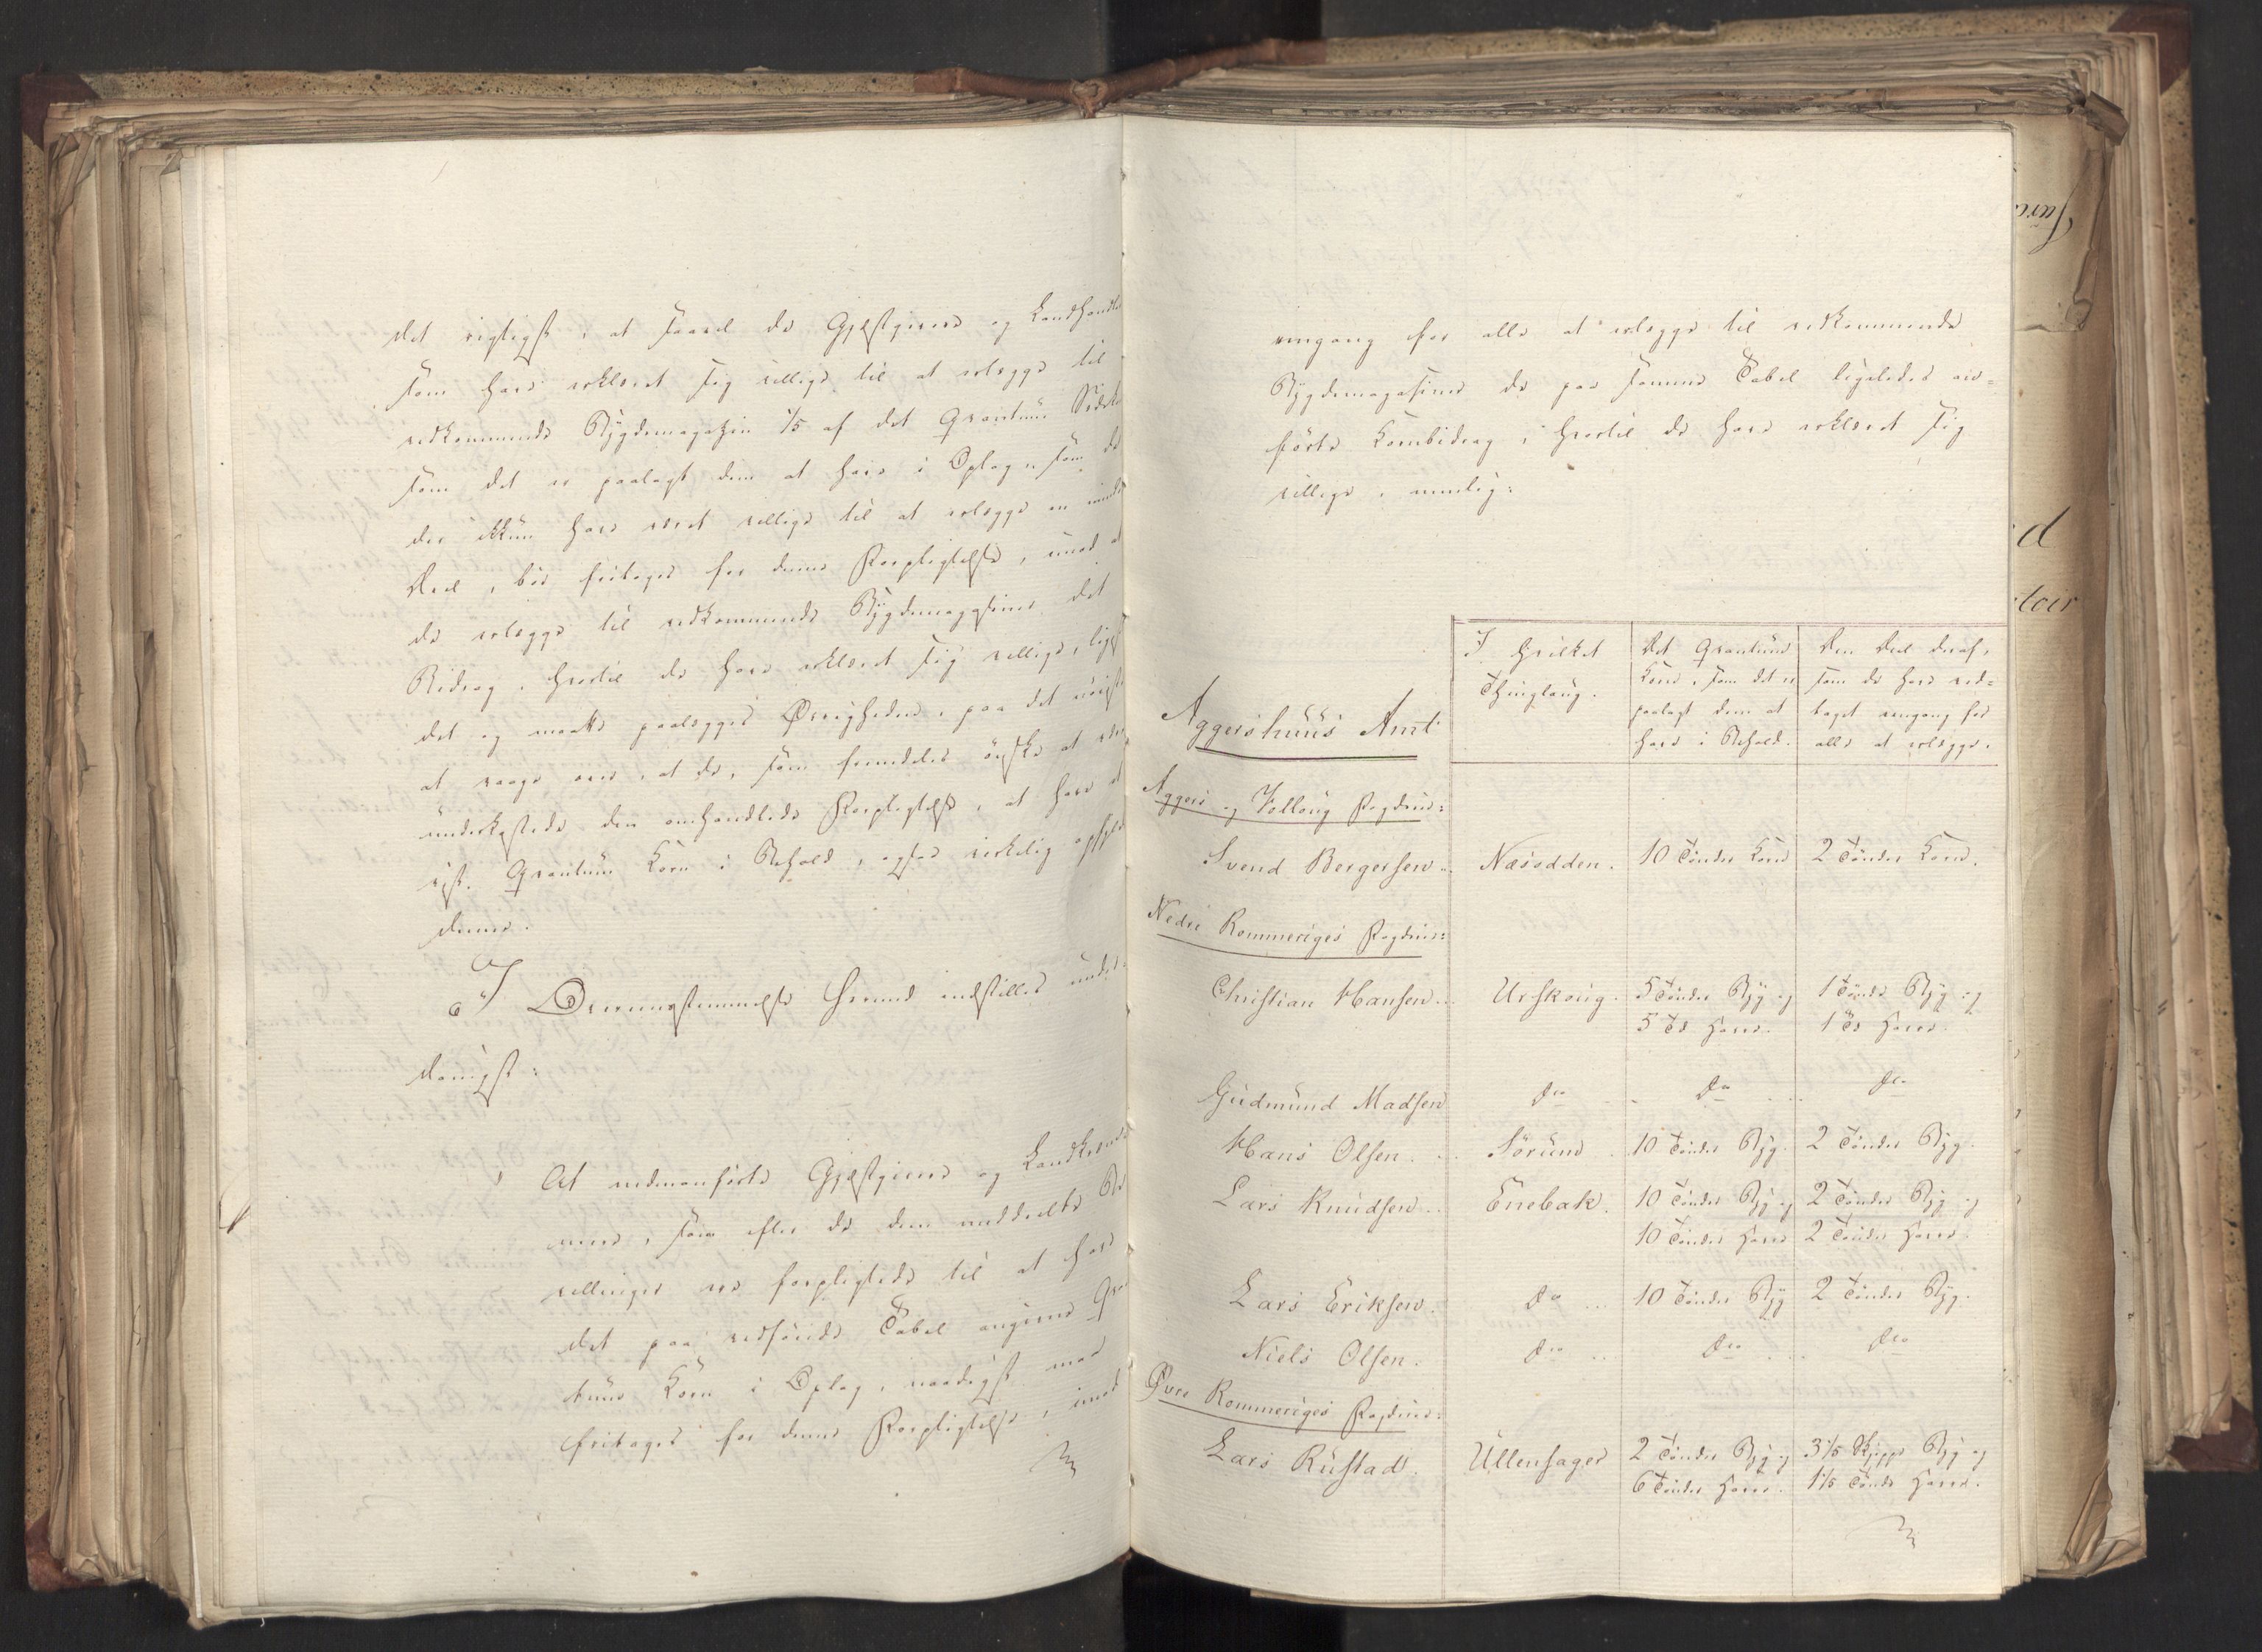 det rigtigst, at saavel de Gjæstgivere og Landhandle
som have erklæret sig villige til at erlægge til
vedkommende Bygdemagazin 1/5 af det Qvantum
som det er paalagt dem at have i Oplag, som de
der ikkun have været villige til at erlægge en mindre
Deel, bør fritages for denne Forpligtelse, imod at
de erlægge til vedkommende Bygdemagasiner det
Bidrag, hvortil de have erklæret sig villige, lige
det og maatte paalægges Øvrigheden, paa det nöieste
at vaage over, at de, som fremdeles önske at være
underkastede den omhandlede Forpligtelse, at have et
vist Qvantum Korn i Behold, ogsaa virkelig opfylde
denne.
I Overeensstemmelse herved indstilles under-
danigst:
At nedenanförte Gjæstgivere og Landkræm-
mere, som efter de dem meddeelte Be
villinger ere forpligtede til at have
det paa vedföiede Tabel angivne Qvan
tum Korn i Oplag, naadigst maa
fritages for denne Forpligtelse, imod
eengang for alle at erlægge til vedkommende
Bygdemagasiner de paa samme Tabel ligeledes an-
förte Kornbidrag, hvortil de have erklæret sig
villige, nemlig:
I hvilket Thinglaug.
Det Qvantum Korn, som det er paalagt dem at have i Behold.
Den Deel deraf, som de have ved- taget eengang for alle at erlægge.
Aggershuus Amt
Aggers og Folloug Fogderie:
Svend Bergersen .. Næsodden. 10 Tönder Korn 2 Tönder Korn.
Nedre Rommeriges Fogderie:
Christian Hansen ... Urskoug. 5 Tönder Byg og 1 Tönde Byg og
5 Td Havre. 1 Td Havre.
Gudmund Madsen do .. do ... do
Hans Olsen. .. Sörum . 10 Tönder Byg. 2 Tönder Byg.
Lars Knudsen .. Enebak. 10 Tönder Byg og 2 Tönder Byg og
10 Tönder Havre 2 Tönder Havre.
Lars Eriksen. do ... 10 Tönder Byg 2 Tönder Byg.
Niels Olsen. do .. do ... do
Øvre Rommeriges Fogderie:
Lars Rustad. Ullensager 2 Tönder Byg og 3 1/5 Skjeppe Byg og
6 Tönder Havre. 1 1/5 Tönde Havre.
d
toir